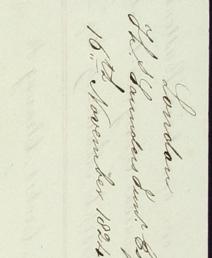 London
Th. Saunders Junr. Es
16th November 1824